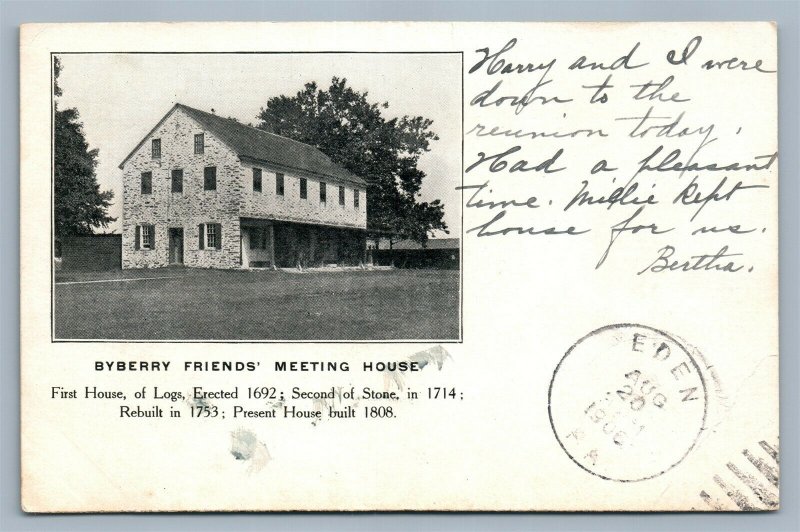 Harry and I were
down to the
reunion today.
Had a pleasant
time. Millie kept
house for us.
Bertha.
BYBERRY FRIENDS' MEETING HOUSE
First House, of Logs, Erected 1692; Second of Stone, in 1714;
Rebuilt in 1753; Present House built 1808.
EDEN
AUG
20
1906
PA